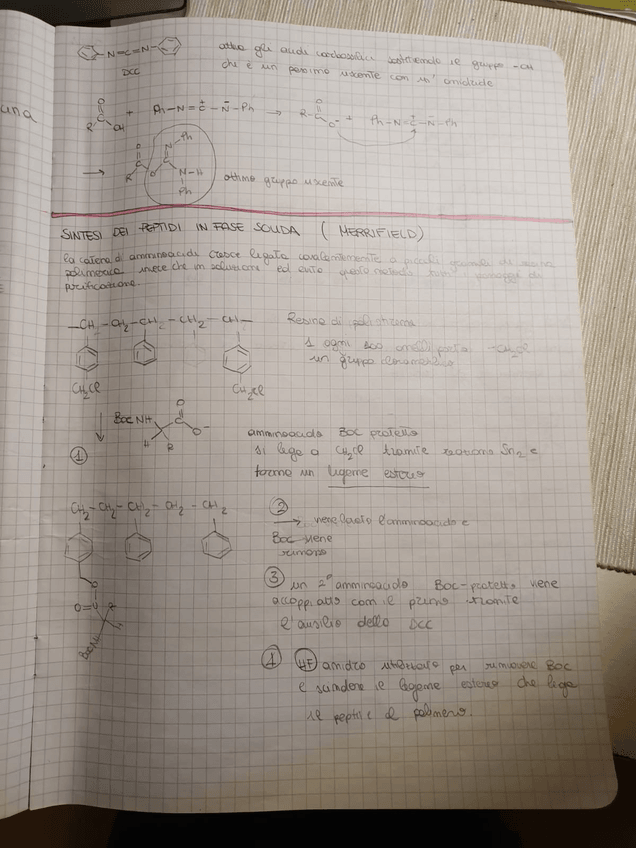 una
-N=C=N-
DCC
attiva gli acidi carbossilici sostituendo il gruppo -OH
che è un pessimo uscente con un'
O
R OH + Ph-N=C-N-Ph → R-C O⁻ + Ph-N=C-N-Ph
→ R O N-Ph N-H Ph ottimo gruppo uscente
SINTESI DEI PEPTIDI IN FASE SOLIDA ( MERRIFIELD)
la catena di amminoacido cresce legata covalentemente a piccoli granuli di
polimerica invece che in soluzione ed evito
purificazione.
-CH₂-CH₂-CH-CH₂-CH- Resina di polistirene
1 ogni 100 anelli porta -CH₂Cl
un gruppo clorometile
CH₂Cl CH₂Cl
BocNH O O⁻ H R
① amminoacido Boc protetto
si lega a CH₂Cl tramite reazione Sn2 e
forma un legame estereo
CH₂-CH₂-CH-CH₂-CH₂
② → viene lavato l'amminoacido e
Boc viene
rimosso
③ un 2° amminoacido Boc-protetto viene
accoppiato con il primo tramite
l'ausilio dello DCC
O=
BocN
HF anidro utilizzato per rimuovere Boc
e scindere il legame estereo che lega
il peptide al polimero.